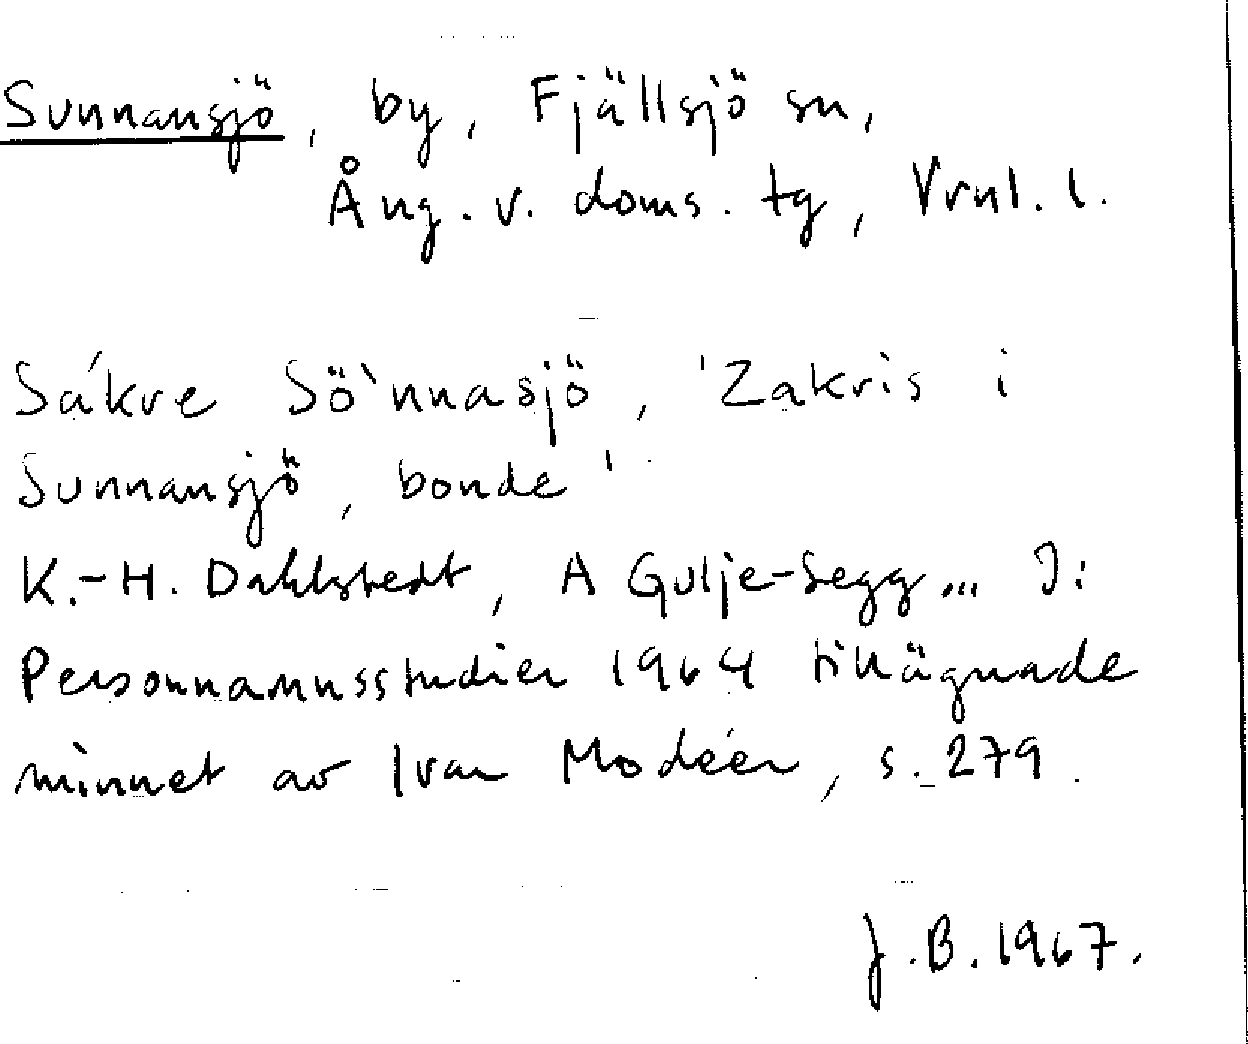 Sunnansjö, by, Fjällsjö sn,
Ång. v. doms. tg, Vrnl. l.
Sákre Sö`nnasjö, 'Zakris i
Sunnansjö, bonde'.
K.-H. Dahlstedt, A Gulje-Segg... I:
Personnamnsstudier 1964 tillägnade
minnet av Ivar Modéer, s. 279.
J.B. 1967.